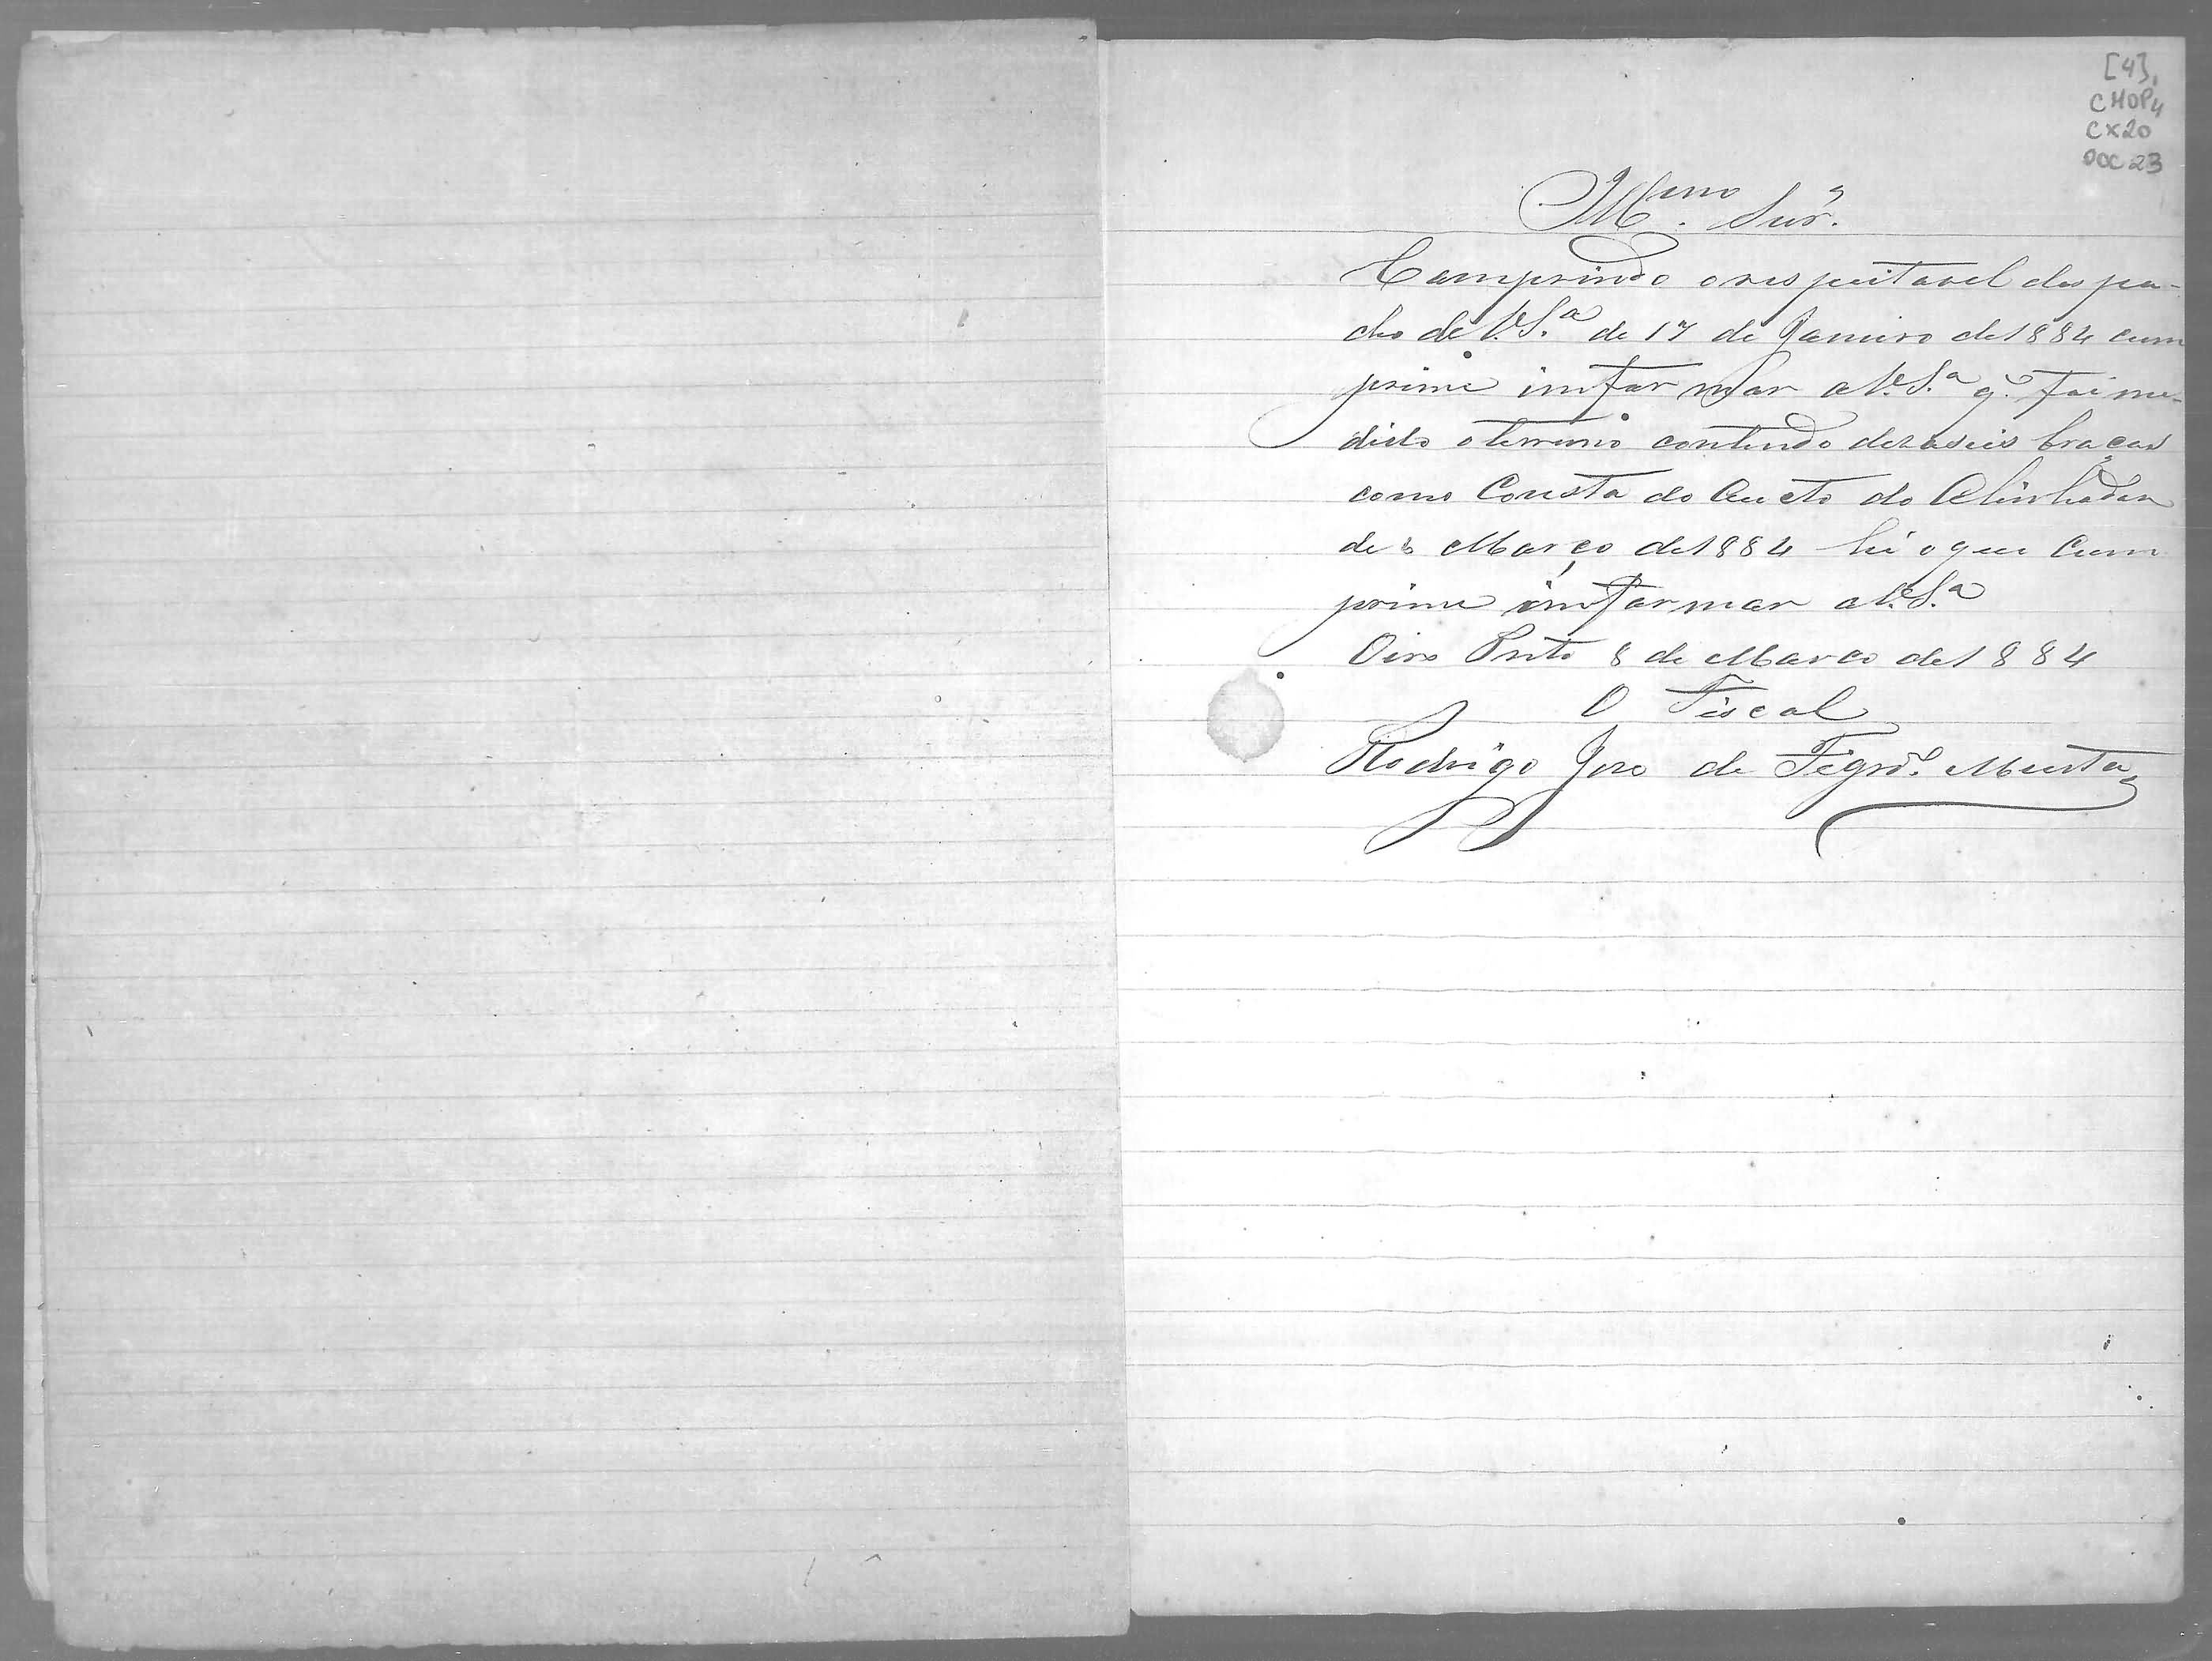 [4].
CMOP4
CX20
DOC 23
Illmo. Snr.
Comprindo o respeitavel despa-
cho de V.S.ª de 17 de Janeiro de 1884 cum
prime imformar a V.S.ª q. foi me-
dido o terreno contendo dezaseis braças
como Consta do Aucto do Alinhador
de 8 Março de 1884 hé o que Cum
prime imformar a V.S.ª
Oiro Preto 8 de Março de 1884
O Fiscal
Rodrigo Jose de Figrdo. Murta